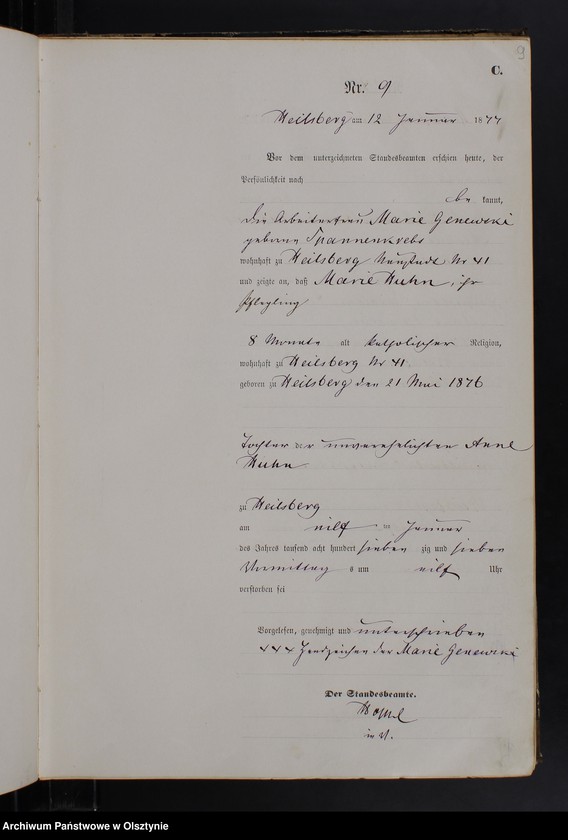 9
C.
Nr. 9
Heilsberg am 12 Januar 1877
Vor dem unterzeichneten Standesbeamten erschien heute, der
Persönlichkeit nach
be kannt,
die Arbeiterfrau Marie Genewski
geborne Spannenkrebs
wohnhaft zu Heilsberg Neustadt Nr 41
und zeigte an, daß Marie Kuhn, ihr
Pflegling
8 Monate alt katholischer Religion,
wohnhaft zu Heilsberg Nr 41
geboren zu Heilsberg den 21 Mai 1876
Tochter der unverehelichten Anne
Kuhn
zu Heilsberg
am eilf ten Januar
des Jahres tausend acht hundert sieben zig und sieben
Vormittag s um eilf Uhr
verstorben sei
Vorgelesen, genehmigt und unterschrieben
+++ Handzeichen der Marie Genewski
Der Standesbeamte.
in V.
Archiwum Państwowe w Olsztynie